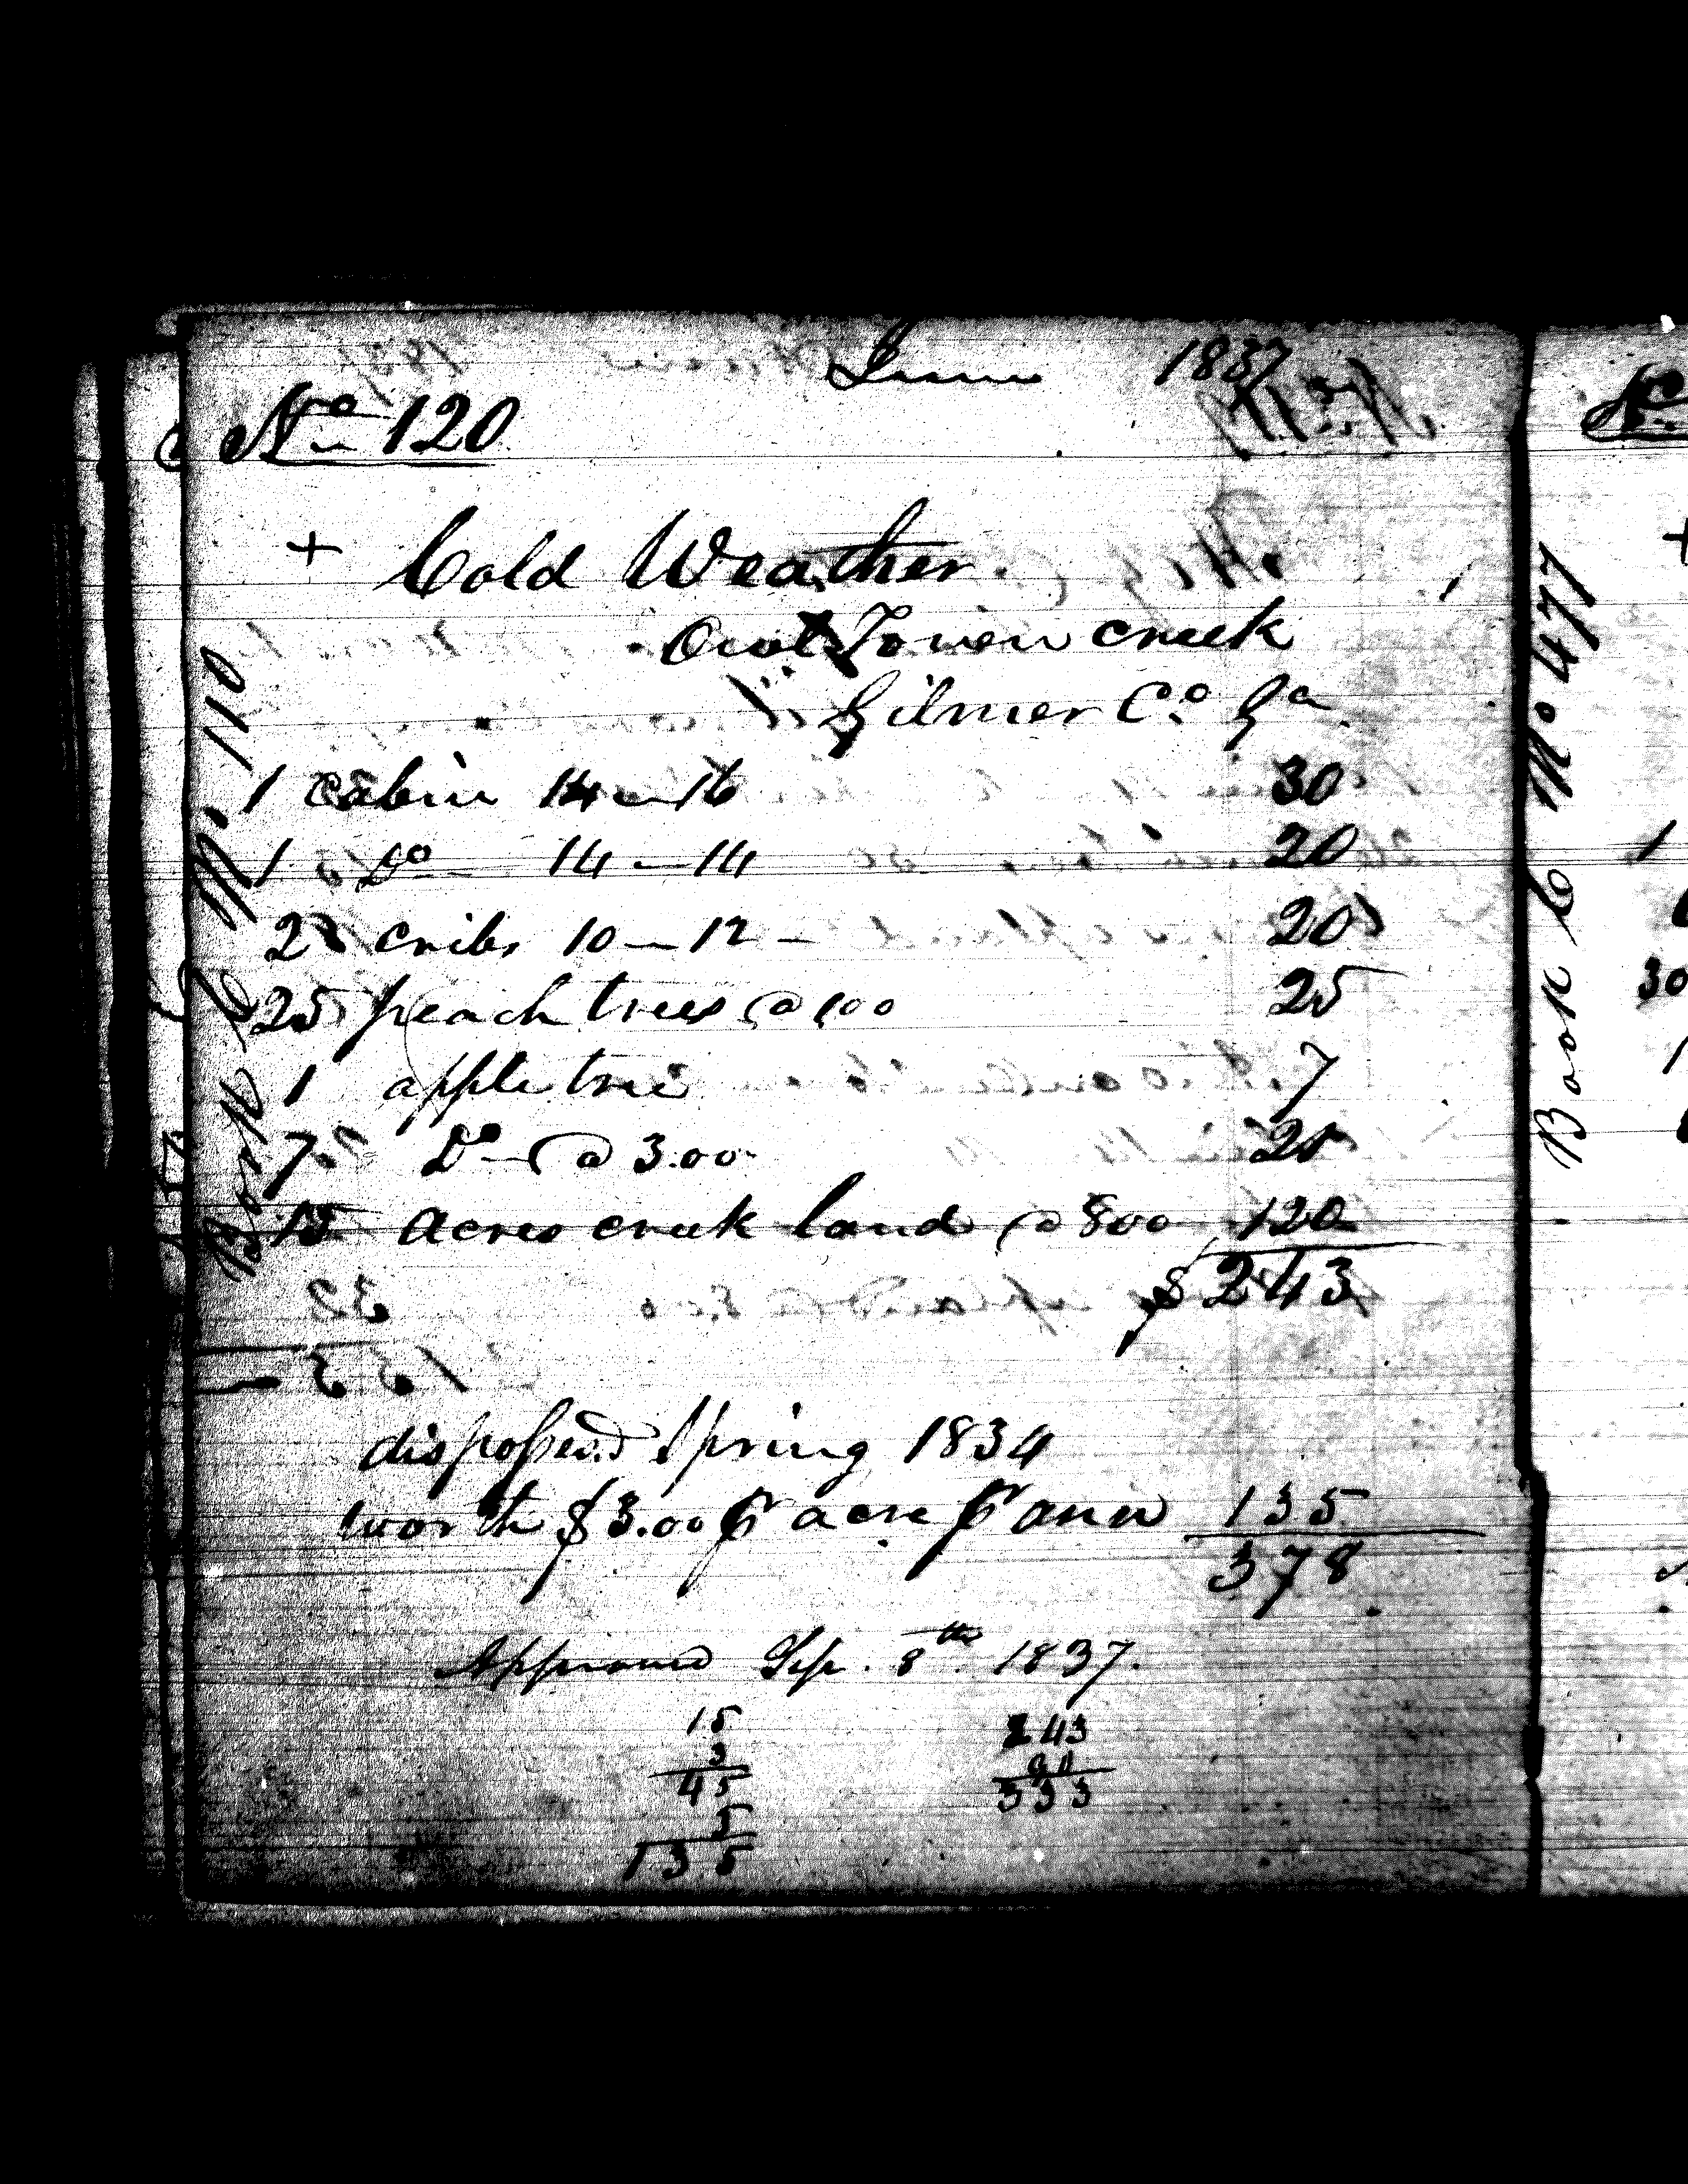 June 1837
No 120
+ Cold Weather.
Owl Town creek
Gilmer Co. Ga.
1 cabin 14 - 16 30
1 Do 14 - 14 20
2 cribs 10 - 12 - 20
25 peach trees @ 100 25
1 apple tree 7
7 Do - @ 3.00 21
15 acres creek land @ 800 120
$ 243
dispossesd Spring 1834
worth $3.00 pr acre pr ann 135
378
Approved Sep. 8th 1837.
15 243
3 90
45 333
3
135
Book C No 110
Book C No 477
1
30
1